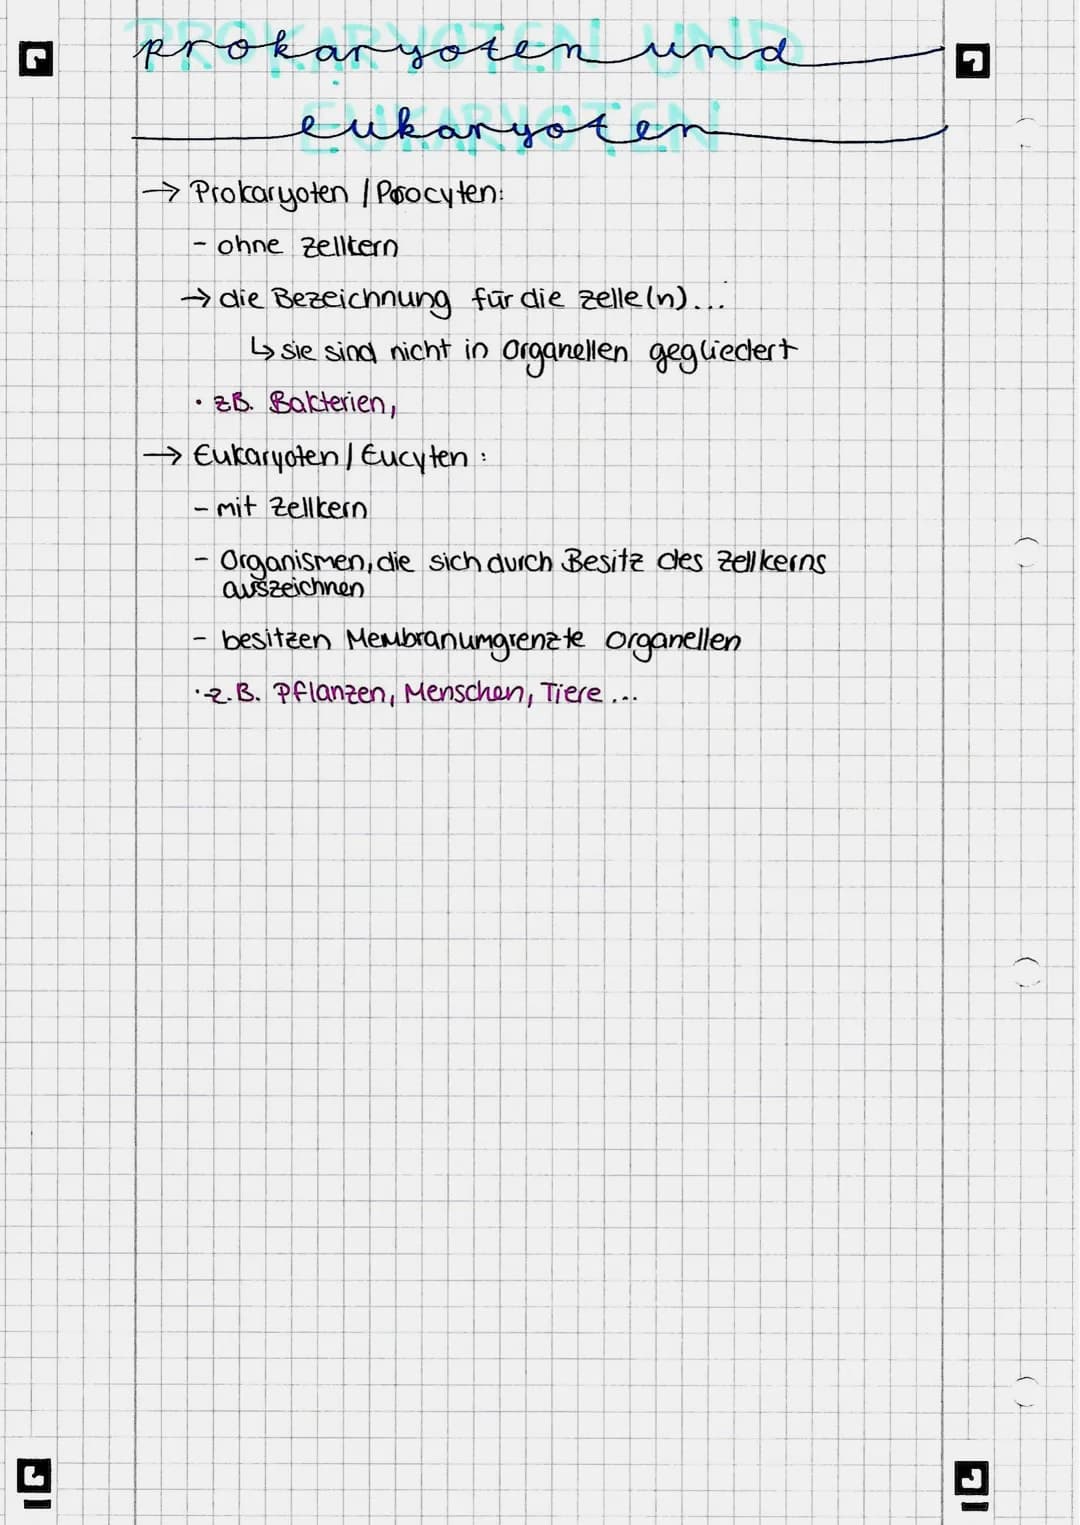 prokaryoten und
PROKARYOTEN UND
eukaryoten
EUKARYOTEN
→ Prokaryoten / Procyten:
- ohne Zellkern
→ die Bezeichnung für die Zelle(n)...
↳ sie sind nicht in Organellen gegliedert
· zB. Bakterien,
→ Eukaryoten / Eucyten :
- mit Zellkern
- Organismen, die sich durch Besitz des Zellkerns
auszeichnen
- besitzen Membranumgrenzte Organellen
· z.B. Pflanzen, Menschen, Tiere ...